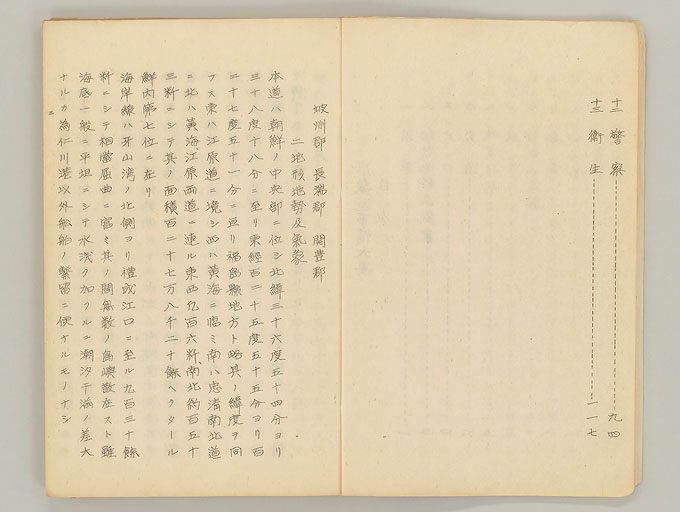 十二 警察 九四
十三 衛生 一一七
坡州郡 長湍郡 開豊郡
二 地形地勢及氣象
本道ハ朝鮮ノ中央部ニ位シ北緯三十六度五十四分ヨリ
三十八度十八分ニ至リ東經百二十五度五十五分ヨリ百
二十七度五十一分ニ亘リ福島縣地方ト略其ノ緯度ヲ同
フス東ハ江原道ニ境シ西ハ黄海ニ臨ミ南ハ忠清南北道
ニ北ハ黄海江原両道ニ連ル東西約百六粁、南北約百五十
三粁ニシテ其ノ面積百二十七万八千二十餘ヘクタール
鮮内第七位ニ在リ
海岸線ハ牙山湾ノ北側ヨリ禮成江口ニ至ル九百三十餘
粁ニシテ相當屈曲ニ富ミ其ノ間無数ノ島嶼散在スト雖
海底一般ニ平坦ニシテ水浅ク加フルニ潮汐干満ノ差大
ナルカ為仁川港以外船舶ノ繋留ニ便ナルモノナシ
二